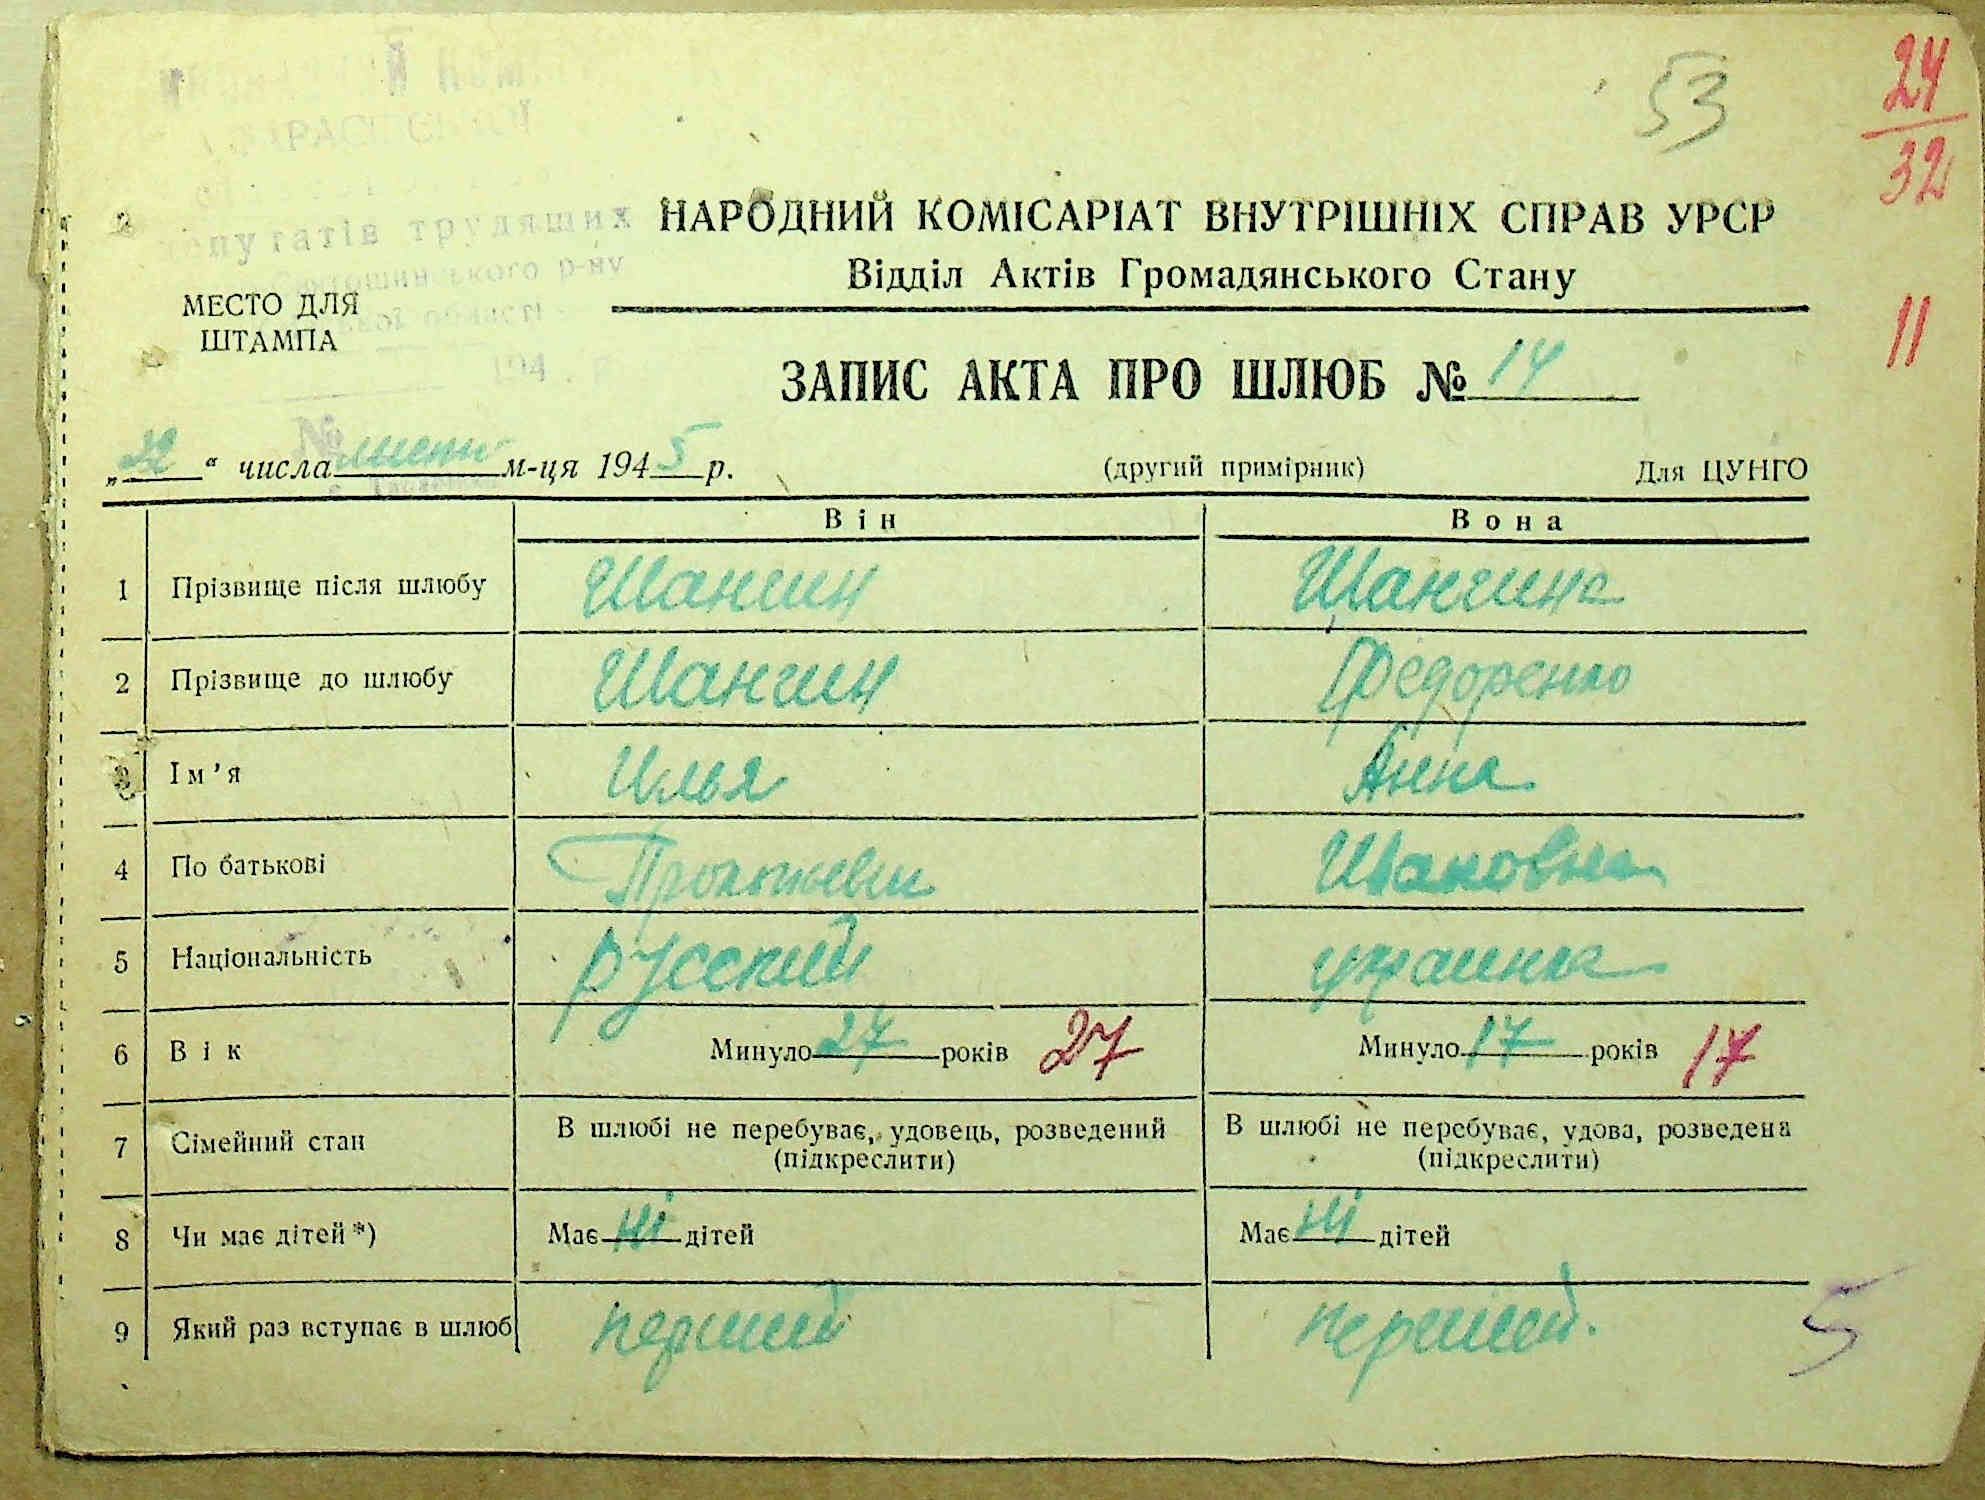 53
24
32
11
депутатів трудящих
р-ну
області
194 . р.
№
НАРОДНИЙ КОМІСАРІАТ ВНУТРІШНІХ СПРАВ УРСР
Відділ Актів Громадянського Стану
МЕСТО ДЛЯ
ШТАМПА
ЗАПИС АКТА ПРО ШЛЮБ № 14
„22“ числа м-ця 1945 р. (другий примірник) Для ЦУНГО
Він Вона
1 Прізвище після шлюбу Шангин Шангина
2 Прізвище до шлюбу Шангин Федоренко
3 Ім’я Илья Анна
4 По батькові
5 Національність русский украинка
6 Вік Минуло 27 років 27 Минуло 17 років 17
7 Сімейний стан В шлюбі не перебуває, удовець, розведений В шлюбі не перебуває, удова, розведена
(підкреслити) (підкреслити)
8 Чи має дітей *) Має ні дітей Має ні дітей
9 Який раз вступає в шлюб перший перший.
5